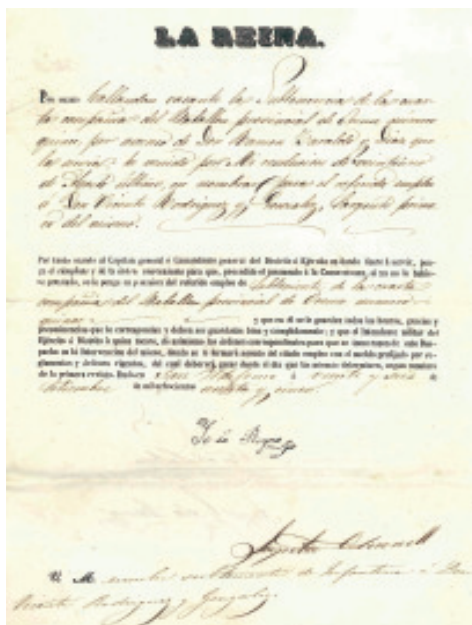 LA REINA.
Por cuanto hallándose vacante la Subtenencia de la cuar
ta compañía del Batallon provincial de número
quince por ascenso de Don Ramon y Diaz que
la servia he venido por Mi resolucion de
de Agosto último, en nombrar para el referido empleo
á Don Vicente Rodriguez y Gonzalez, Sargento prime
ro del mismo.
Por tanto mando al Capitan general ó Comandante general del Distrito ó Ejército en donde fuere á servir, pon-
ga el cúmplase y dé la órden conveniente para que, precedido el juramento á la Constitucion, si no le hubie-
se prestado, se le ponga en posesion del referido empleo de Subteniente de la cuarta
compañía del Batallon provincial de número
quince y que en él se le guarden todas las honras, gracias y
preeminencias que le corresponden y deben ser guardadas bien y cumplidamente; y que el Intendente militar del
Ejército ó Distrito á quien tocare, dé asimismo las órdenes correspondientes para que se tome razon de este Des-
pacho en la Intervencion del mismo, donde se le formará asiento del citado empleo con el sueldo prefijado por re-
glamentos y órdenes vigentes, del cual deberá gozar desde el dia que los mismos determinen, segun constare
de la primera revista. Dado en á veinte y seis de
Setiembre de mil ochocientos cincuenta y cinco.
Yo la Reyna
O'Donnell
V. M. nombra subteniente de Infantería á Don
Vicente Rodriguez y Gonzalez.